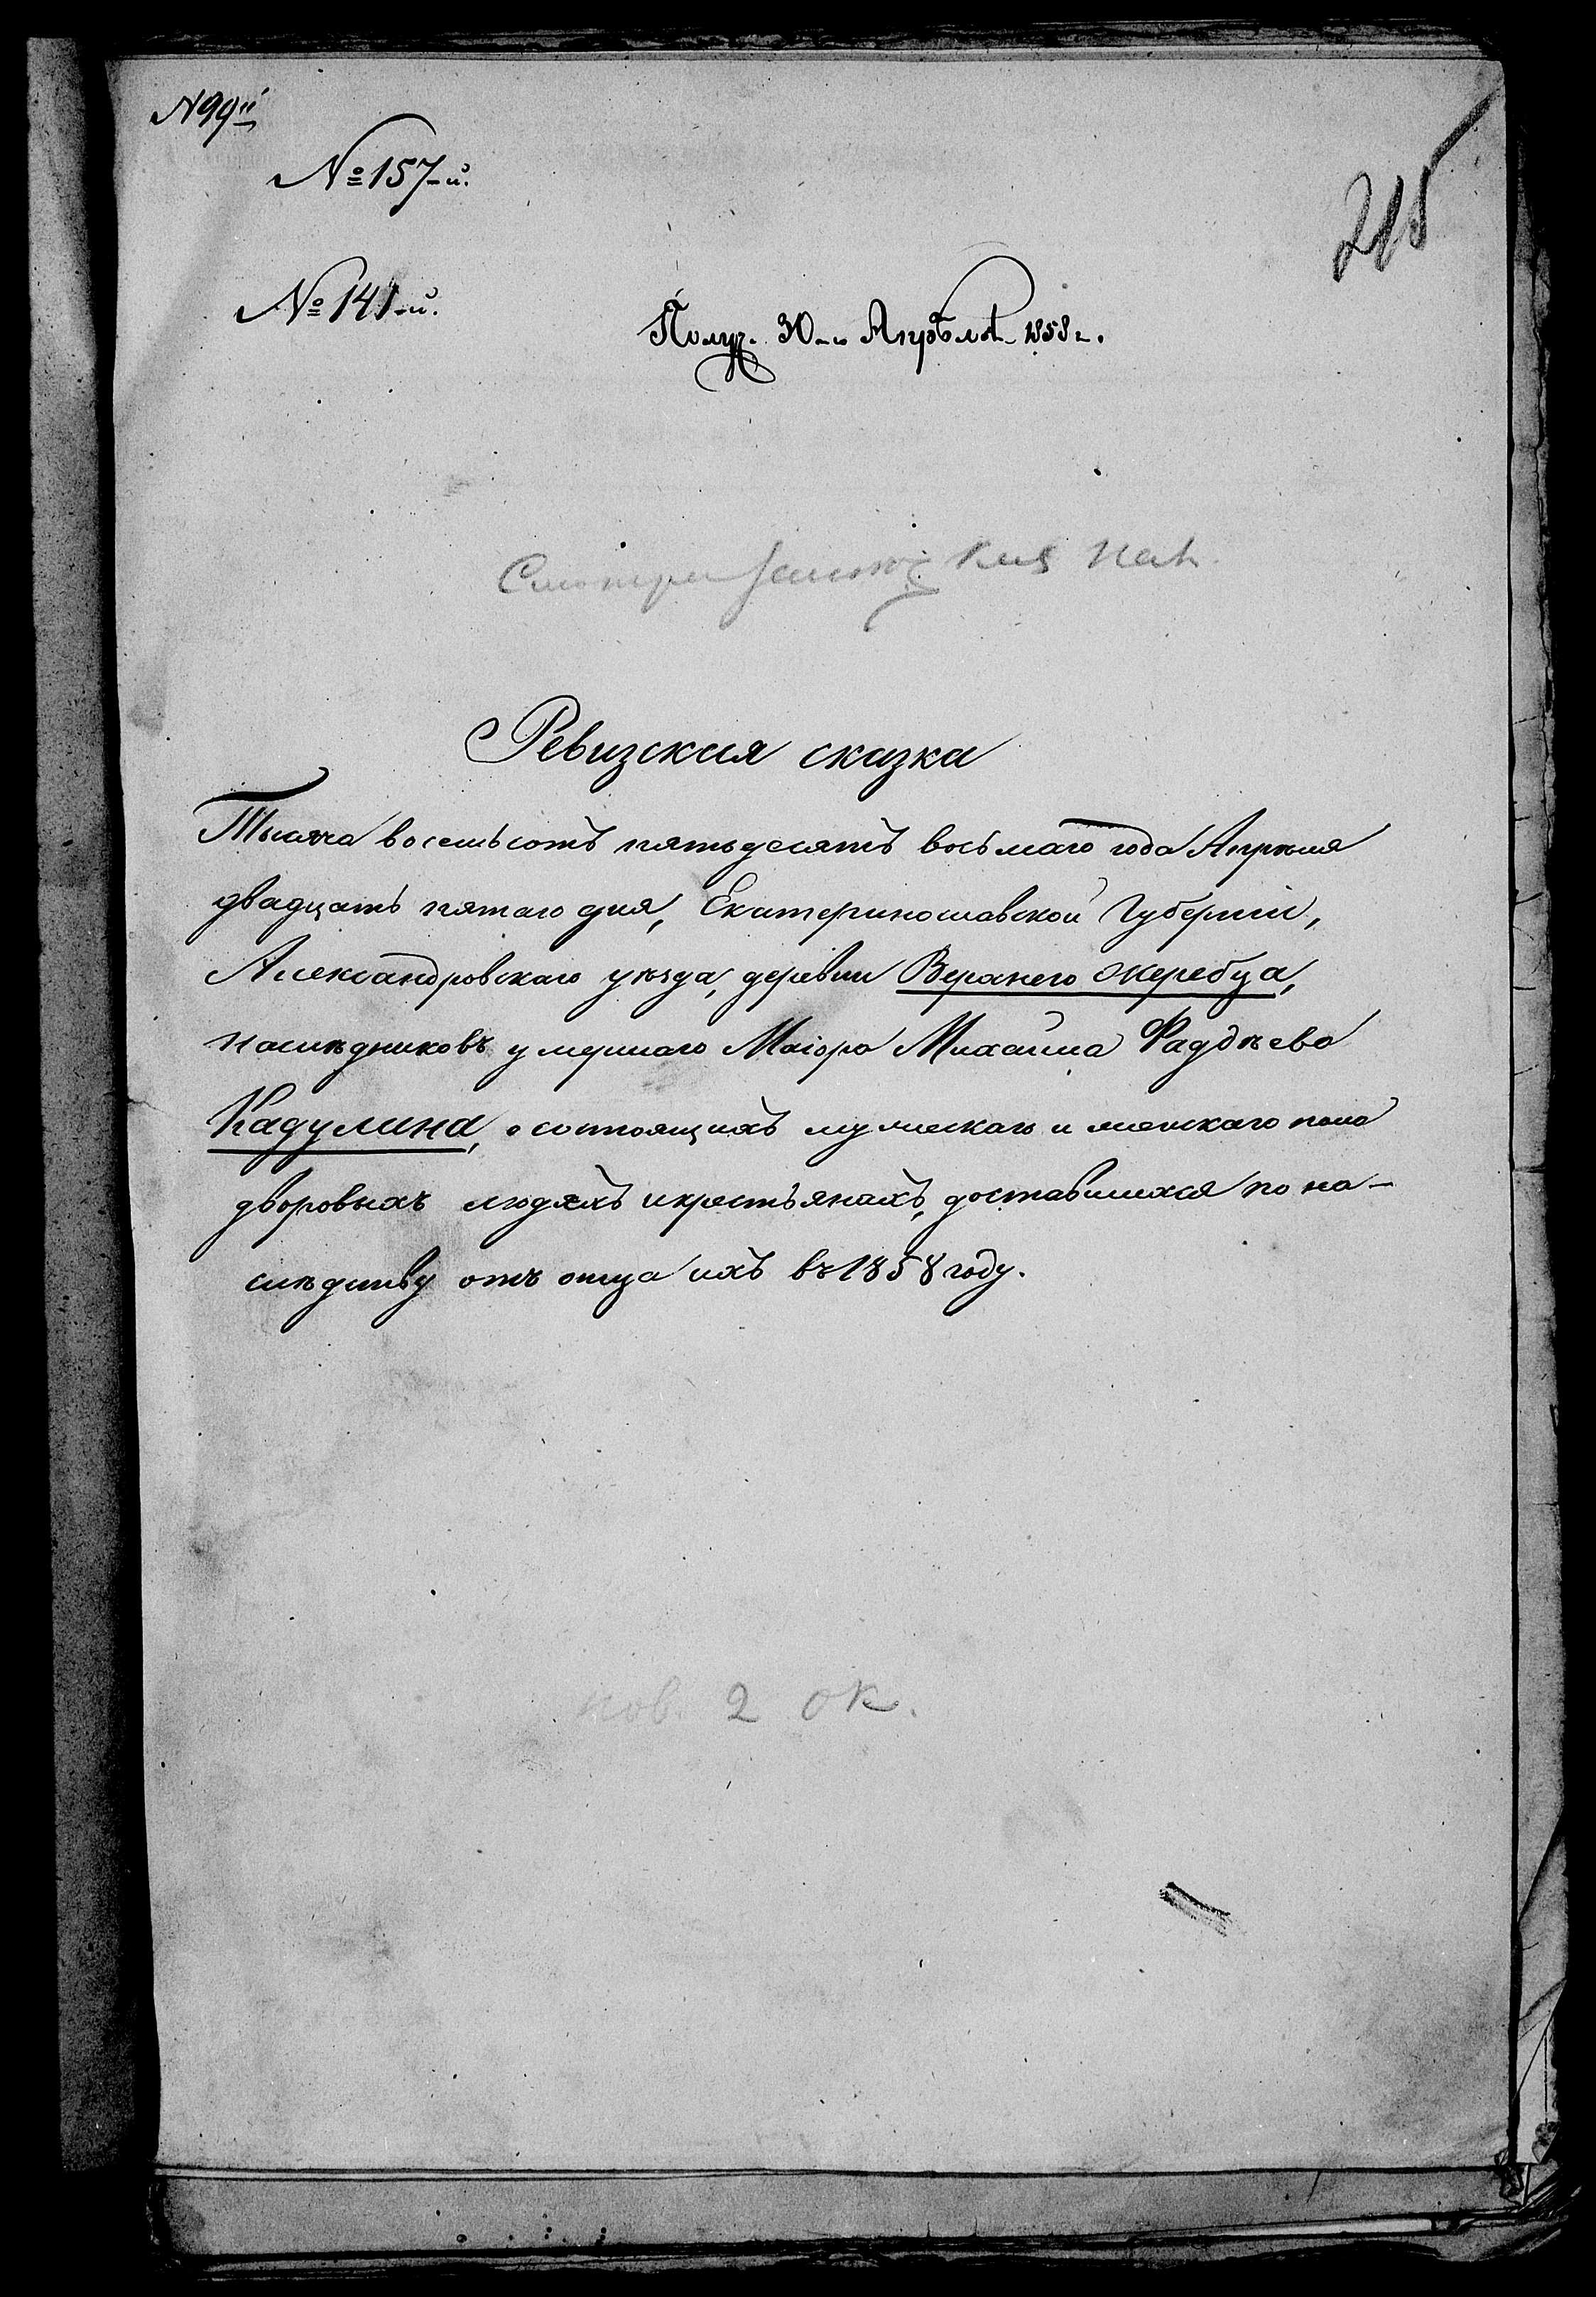 № 99й
№ 157-й.
215
№ 141-й.
Получ. 30-го Апрѣля 1858 г.
Смотри
Ревизская сказка
Тысяча восемьсотъ пятьдесятъ восьмаго года Апрѣля
двадцать пятаго дня, Екатеринославской Губерніи,
Александровскаго уѣзда, деревни Верхнего Жеребца,
наслѣдниковъ умершаго Маіора Михаила Фаддѣева
Кадулина, о состоящихъ мужескаго и женскаго пола
дворовыхъ людяхъ и крестьянахъ, доставшихся по на-
слѣдству отъ отца ихъ въ 1858 году.
нов. 2 ок.